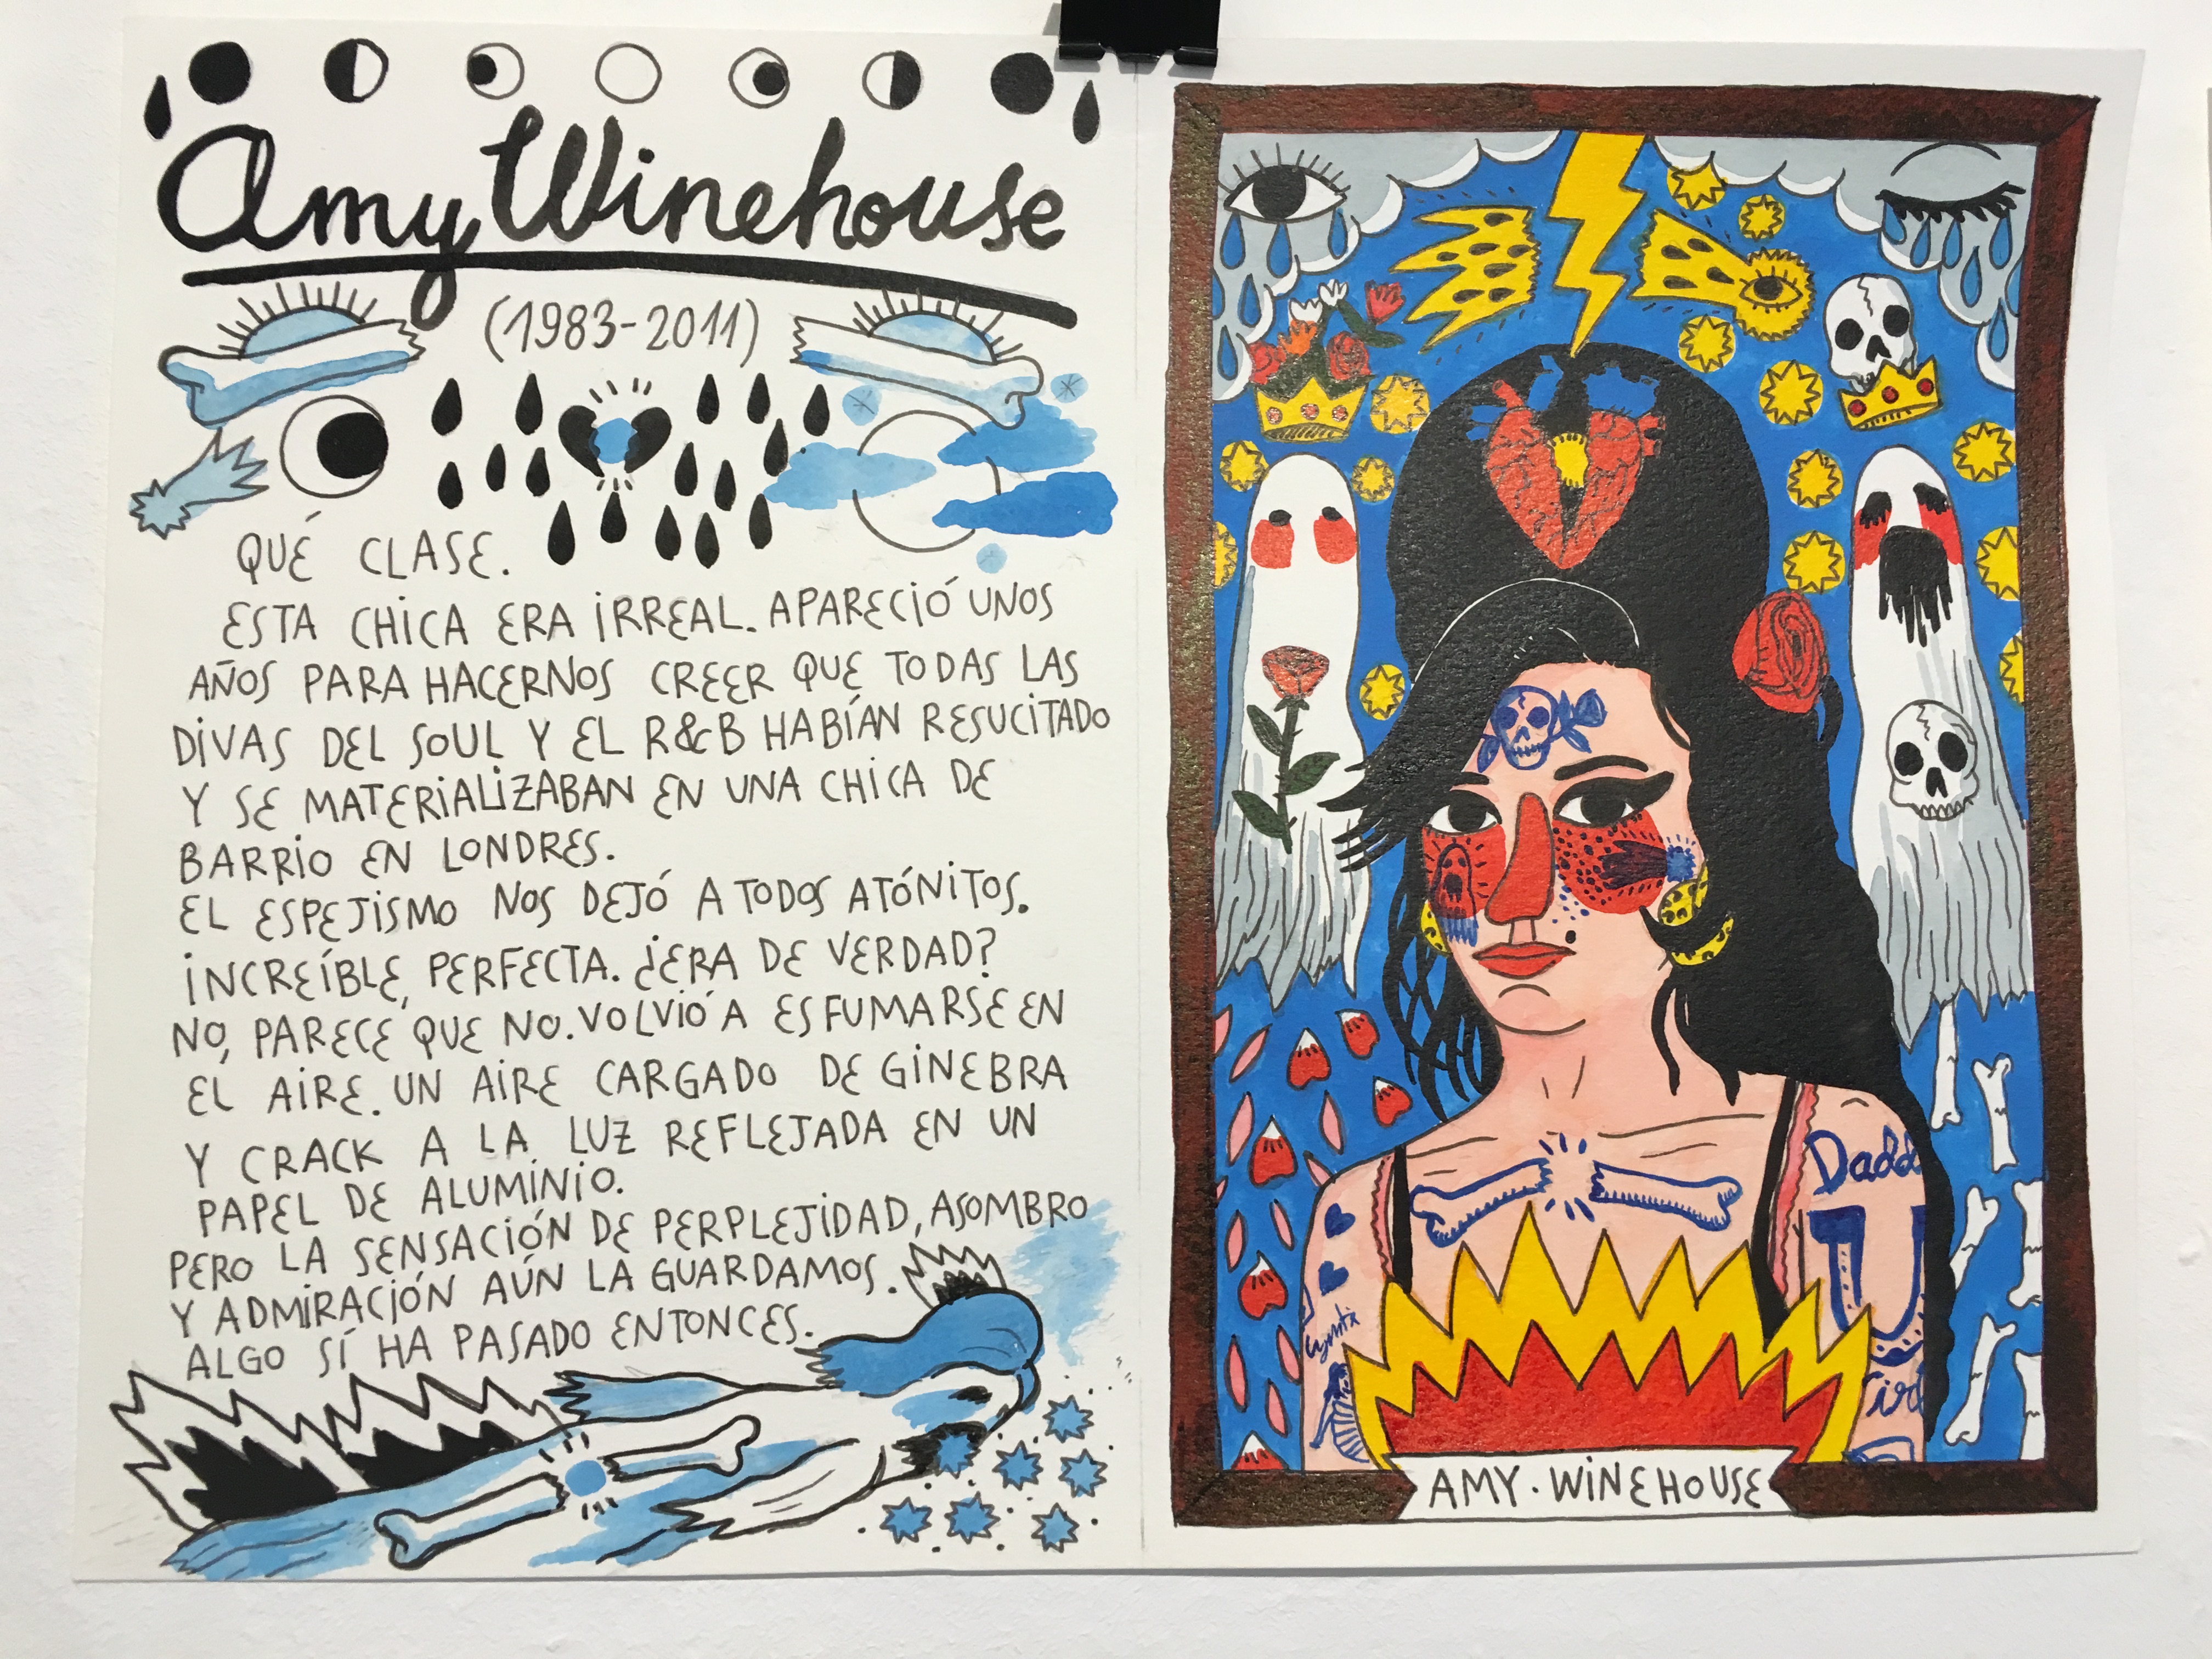 Amy Winehouse
(1983-2011)
QUÉ CLASE.
ESTA CHICA ERA IRREAL. APARECIÓ UNOS
AÑOS PARA HACERNOS CREER QUE TODAS LAS
DIVAS DEL SOUL Y EL R&B HABÍAN RESUCITADO
Y SE MATERIALIZABAN EN UNA CHICA DE
BARRIO EN LONDRES.
EL ESPEJISMO NOS DEJÓ A TODOS ATÓNITOS.
INCREÍBLE, PERFECTA. ¿ERA DE VERDAD?
NO, PARECE QUE NO. VOLVIÓ A ESFUMARSE EN
EL AIRE. UN AIRE CARGADO DE GINEBRA
Y CRACK A LA LUZ REFLEJADA EN UN
PAPEL DE ALUMINIO.
PERO LA SENSACIÓN DE PERPLEJIDAD, ASOMBRO
Y ADMIRACIÓN AÚN LA GUARDAMOS.
ALGO SÍ HA PASADO ENTONCES.
Dadd
AMY · WINEHOUSE